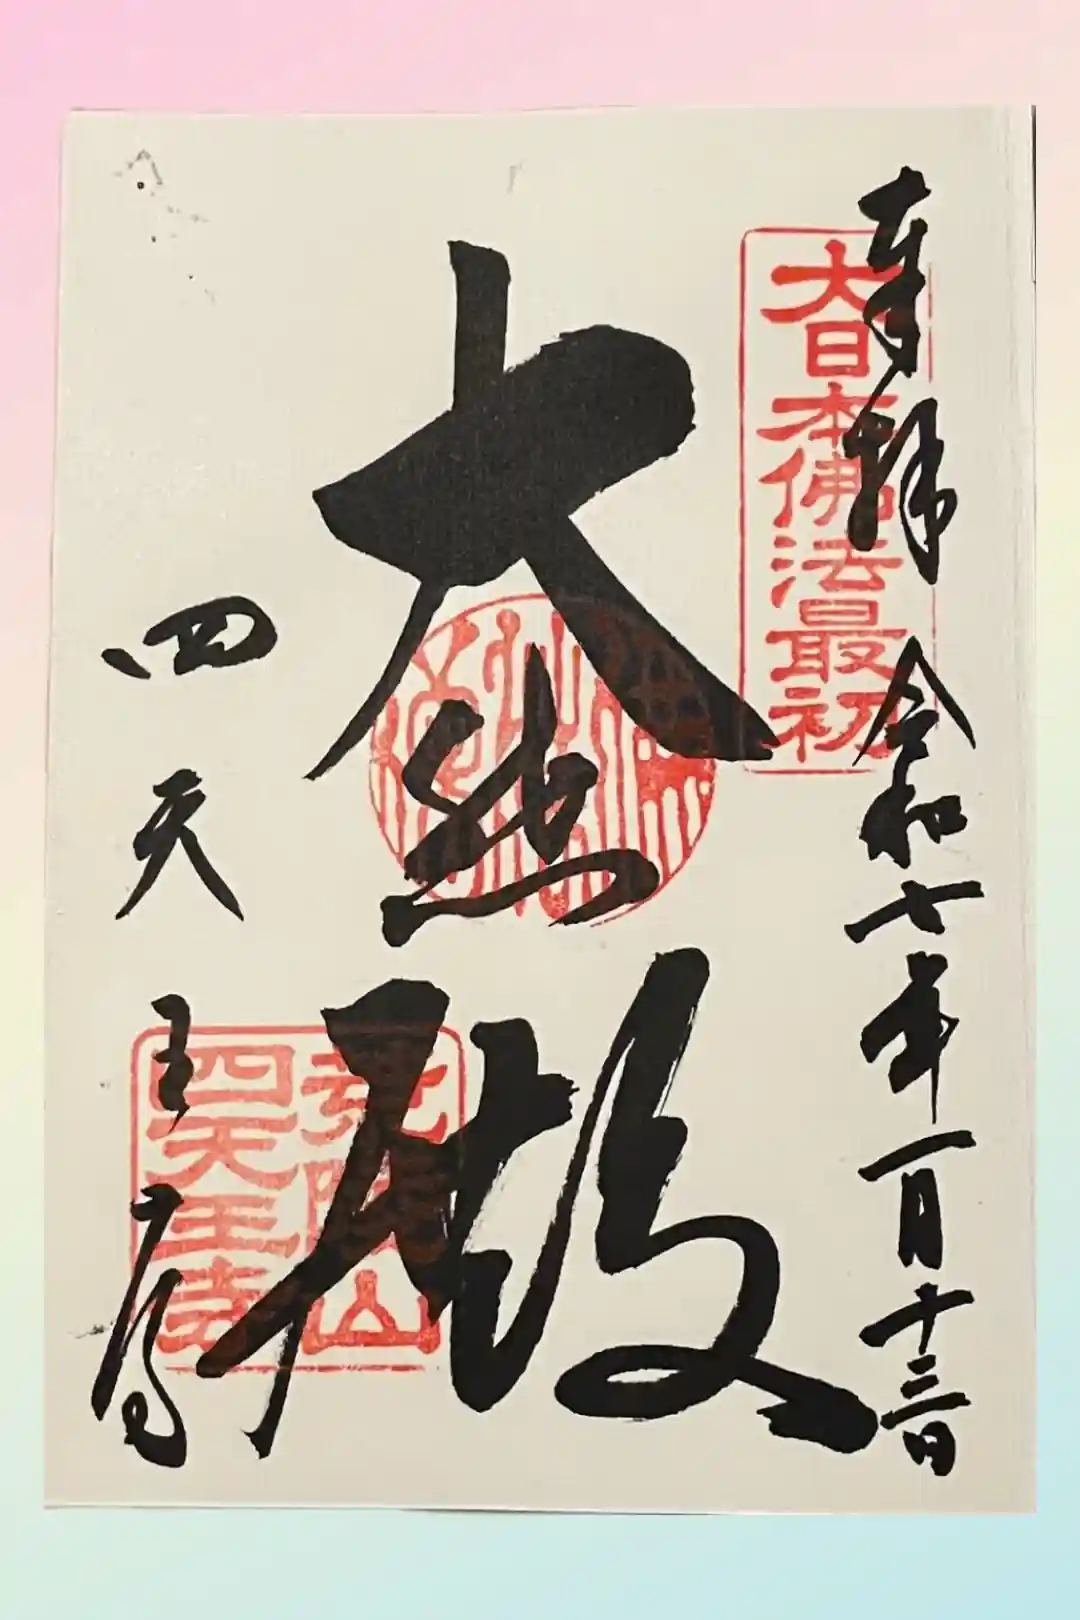 奉拝 令和七年一月十三日
大日本佛法最初
大悲殿
荒陵山
四天王寺
四天王寺